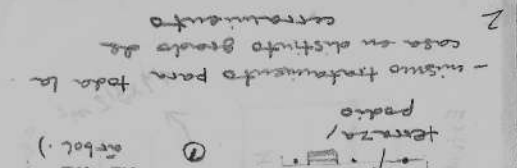 ① árbol.)
terraza/
podio
- mismo tratamiento para toda la
casa en distinto grado de
cerramiento
2